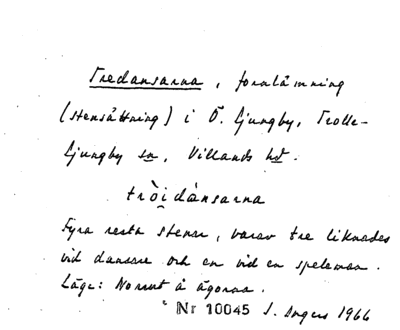 Tredansarna, fornlämning
(stensättning) i Ö. Ljungby, Trolle-
Ljungby sn, Villands hd.
trὸi̯dánsarna
Fyra resta stenar, varav tre liknades
vid dansare och en vid en speleman.
Läge: Norrut å ägorna.
Nr 10045 S. Ingers 1966